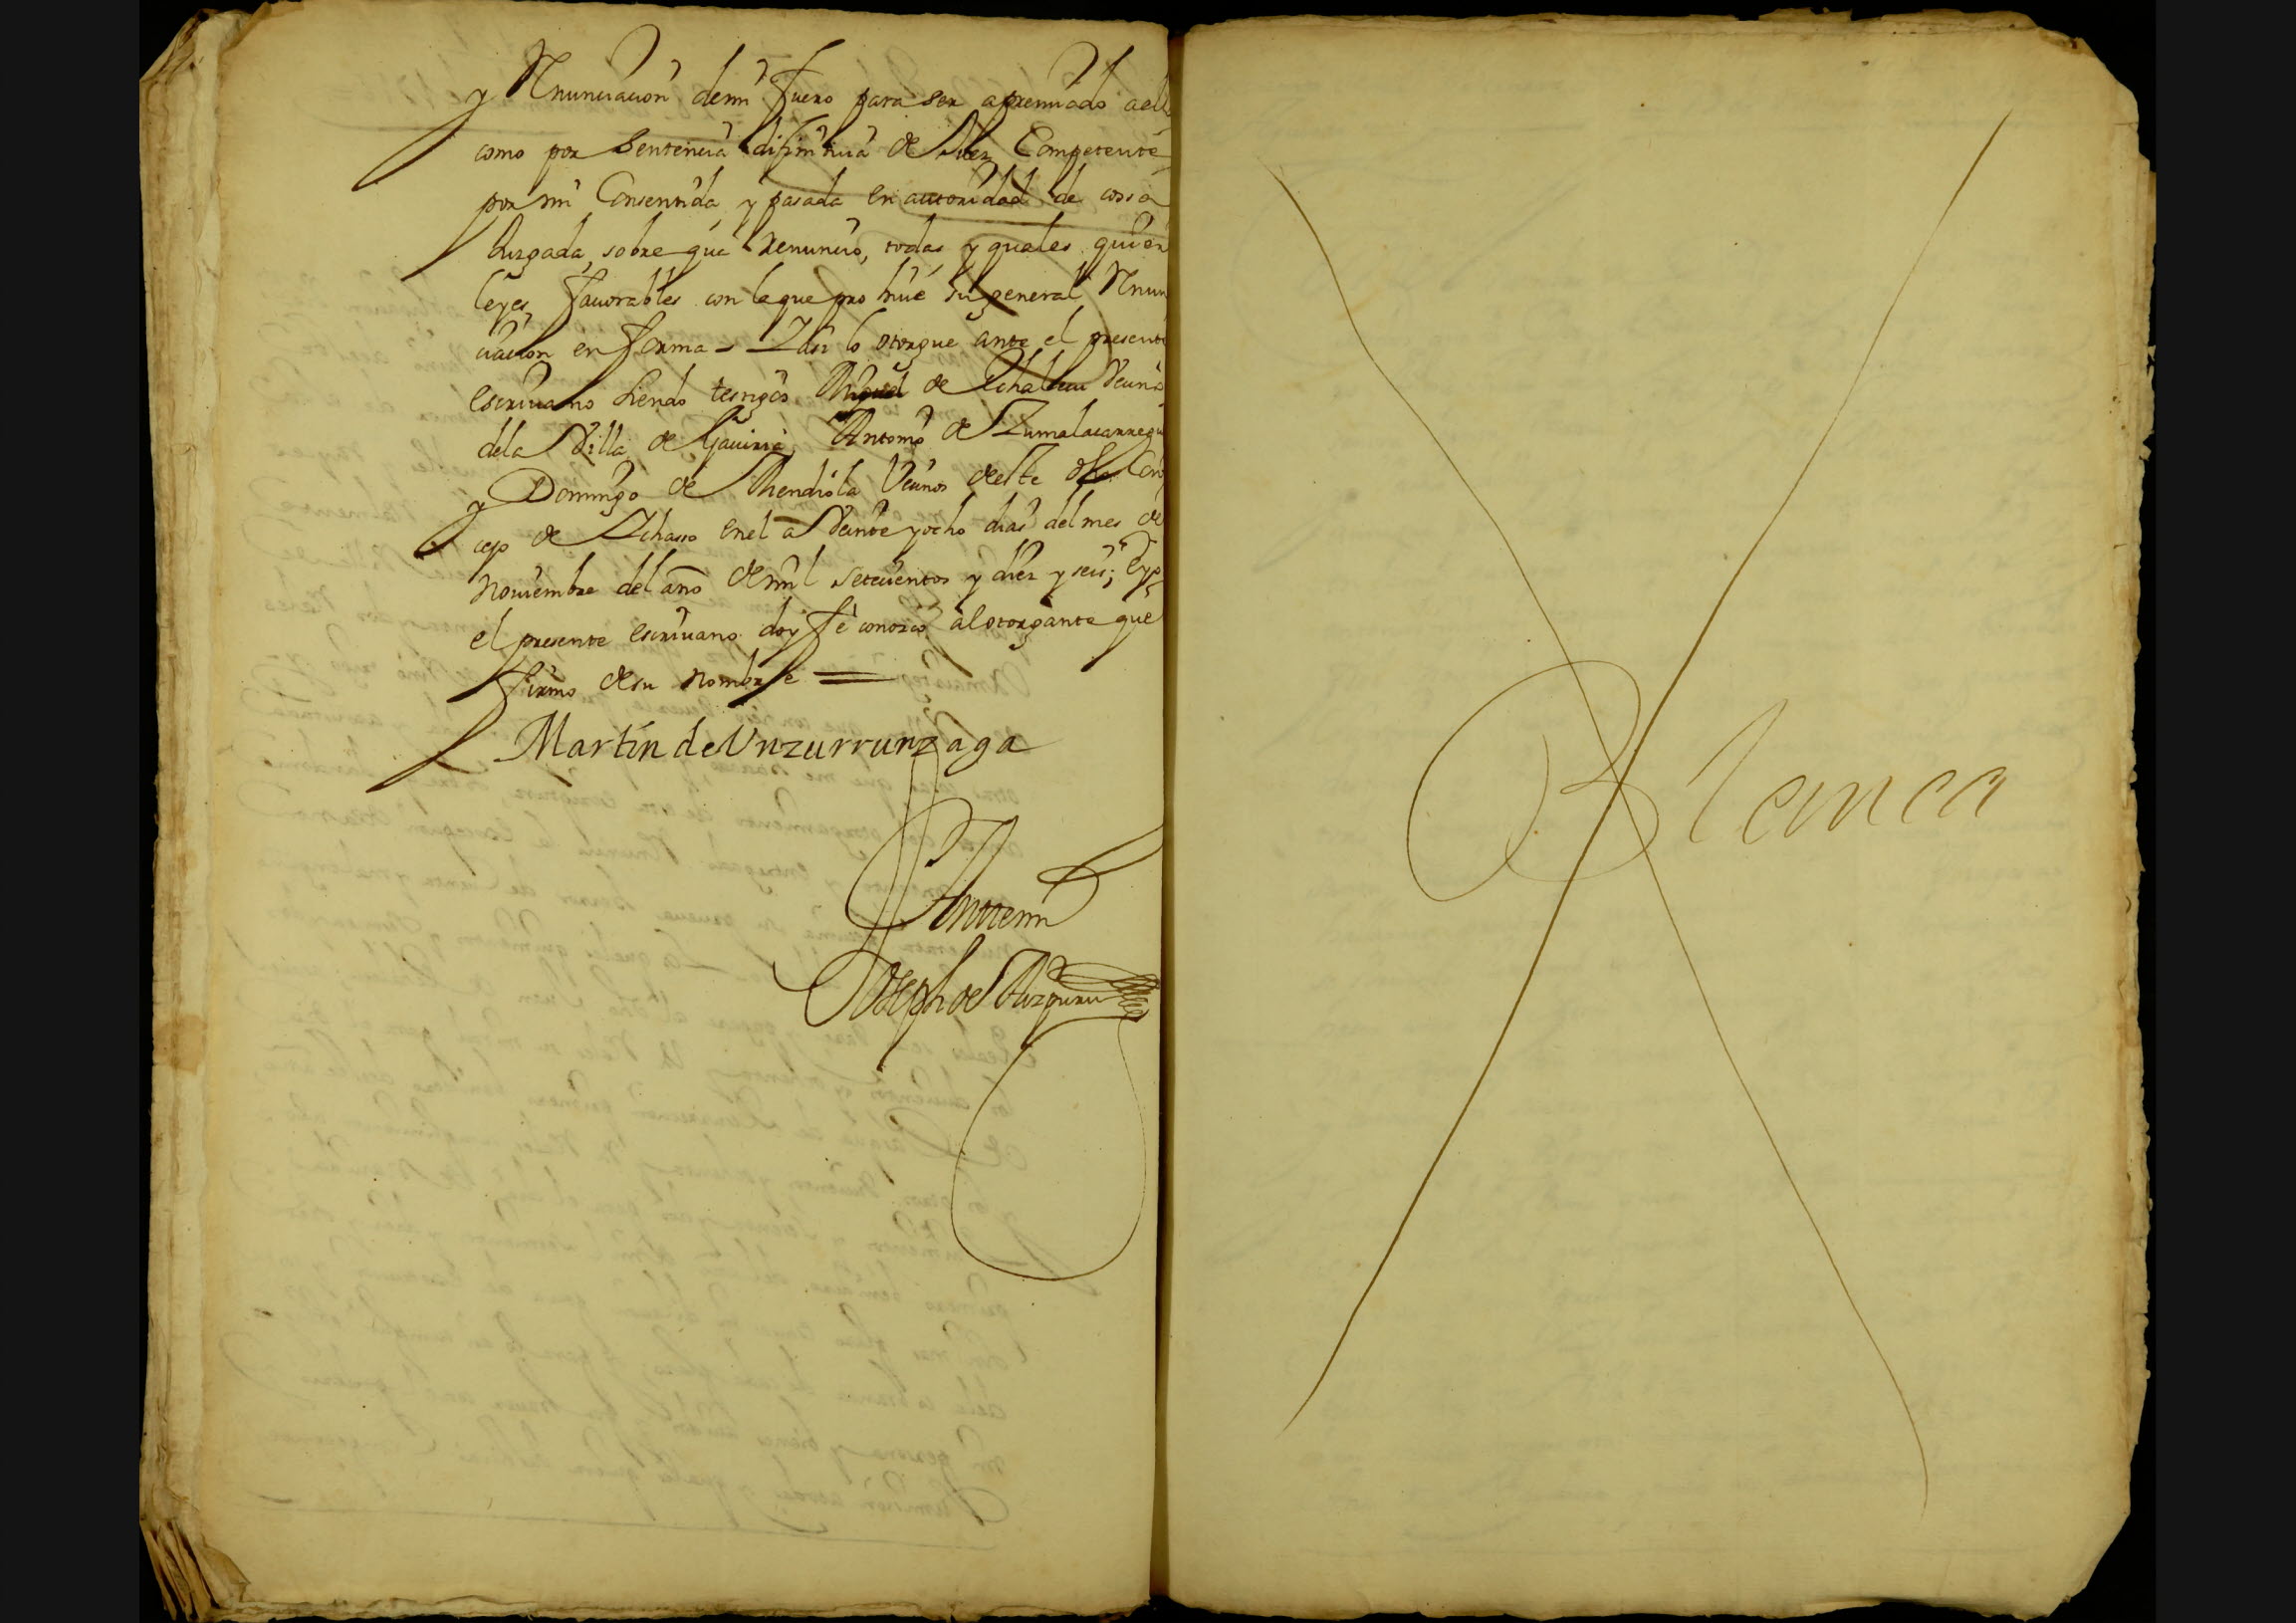 y Renunciacion demi fuero para ser apremiado aell
como por Sentencia difinitiua de Juez Competente
por mi Consentida y pasada en autoridad de cossa
Juzgada, sobre que Renuncio, todas y quales quier
leyes fauorables con la que prohiue la general Renun
ciacion en forma - Y assi lo otorgue ante el presente
escriuano siendo testigos Miguel de Vecino
dela Villa de Gauiria, Antonio de Zumalacarregui
y Domingo de Mendiola Vecinos deste dho Con
cejo de Ychasso en el a Veinte y ocho dias del mes de
Nouiembre del año de mil setecientos y diez y seis; E yo
el presente escriuano doy fe conozco al otorgante que
firmo de su nombre =
Martin de Vnzurrunzaga
Antte mi
Joseph de Aizpuru
Blanca